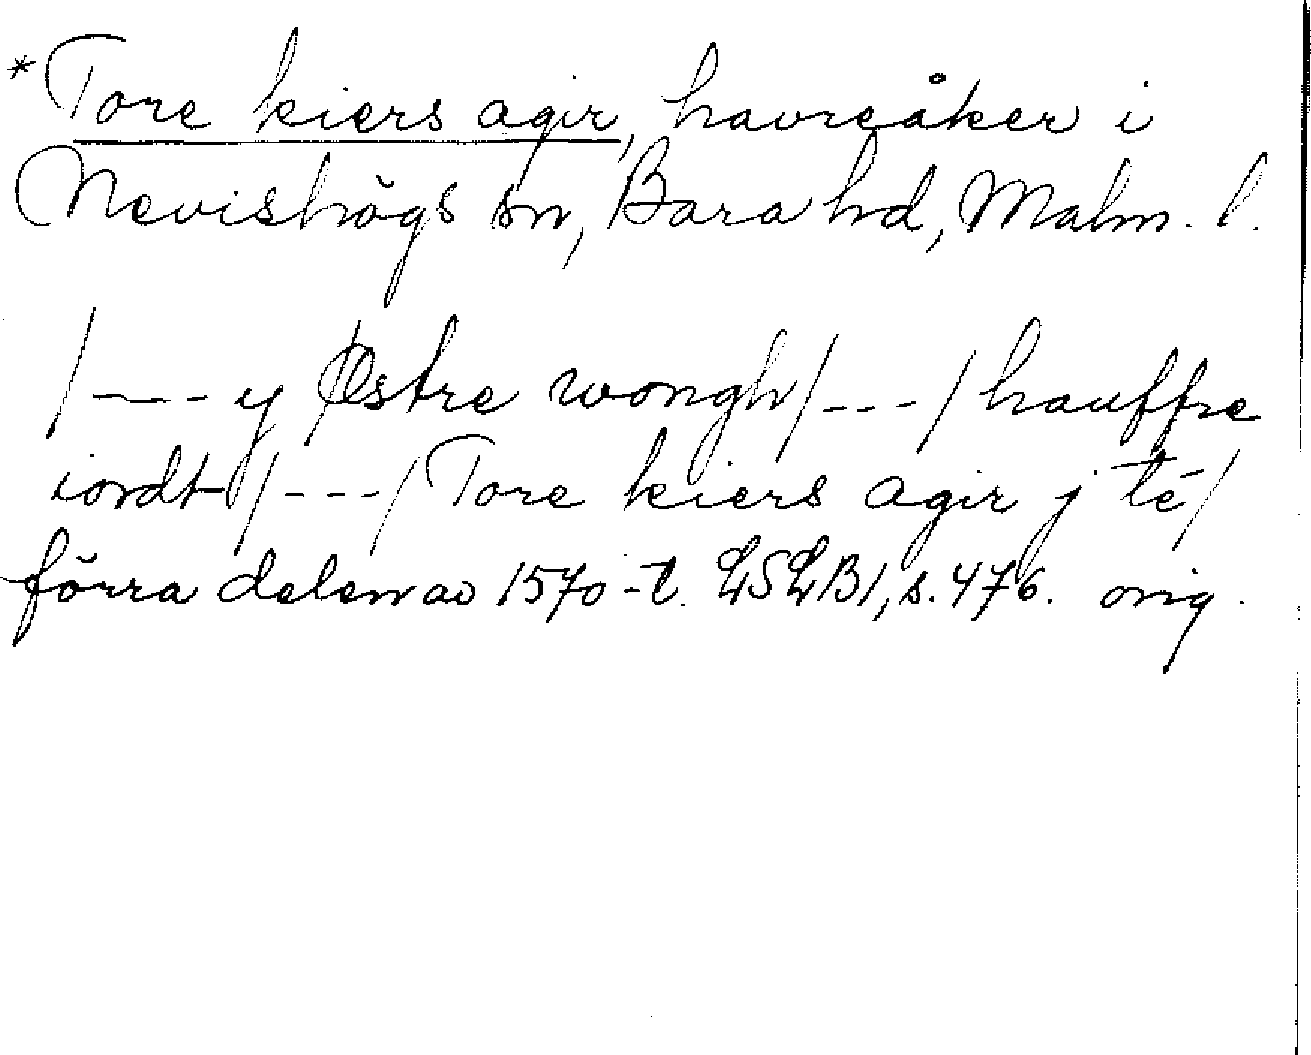 *Tore kiers agir, havreåker i
Nevishögs sn, Bara hd, Malm. l.
/---y Østre wongh/---/hauffre
iordt/---/Tore kiers agir j té/
förra delen av 1570-t. LSLB1, s. 476. orig.